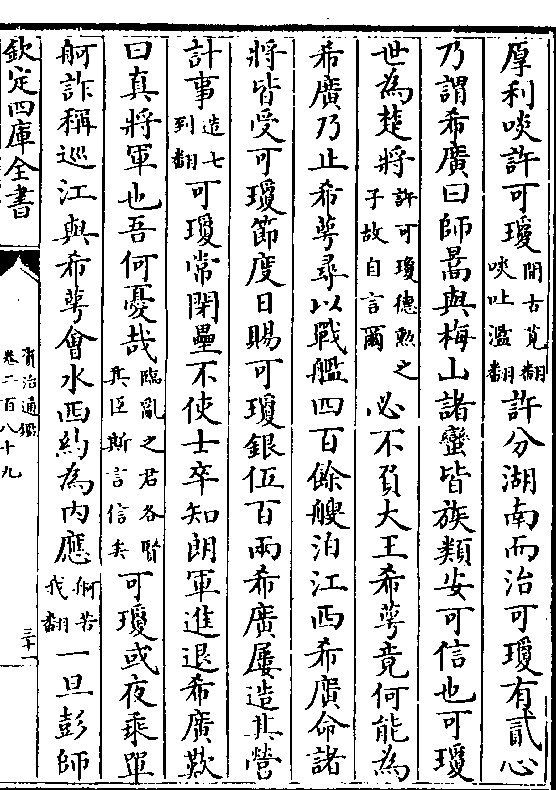 厚利啖許可瓊間古莧翻啖吐濫翻許分湖南而治可瓊有貳心
乃謂希廣曰師暠與梅山諸蠻皆族類安可信也可瓊
世為楚將許可瓊德勲之子故自言爾必不負大王希萼竟何能為
希廣乃止希萼尋以戰艦四百餘艘泊江西希廣命諸
將皆受可瓊節度日賜可瓊銀伍百兩希廣屢造其營
計事造七到翻可瓊常閉壘不使士卒知朗軍進退希廣歎
曰真將軍也吾何憂哉臨亂之君各賢其臣斯言信矣可瓊或夜乘單
舸詐稱巡江與希萼會水西約為内應舸苦我翻一旦彭師
欽定四庫全書
資治通鑑
卷二百八十九
三十一